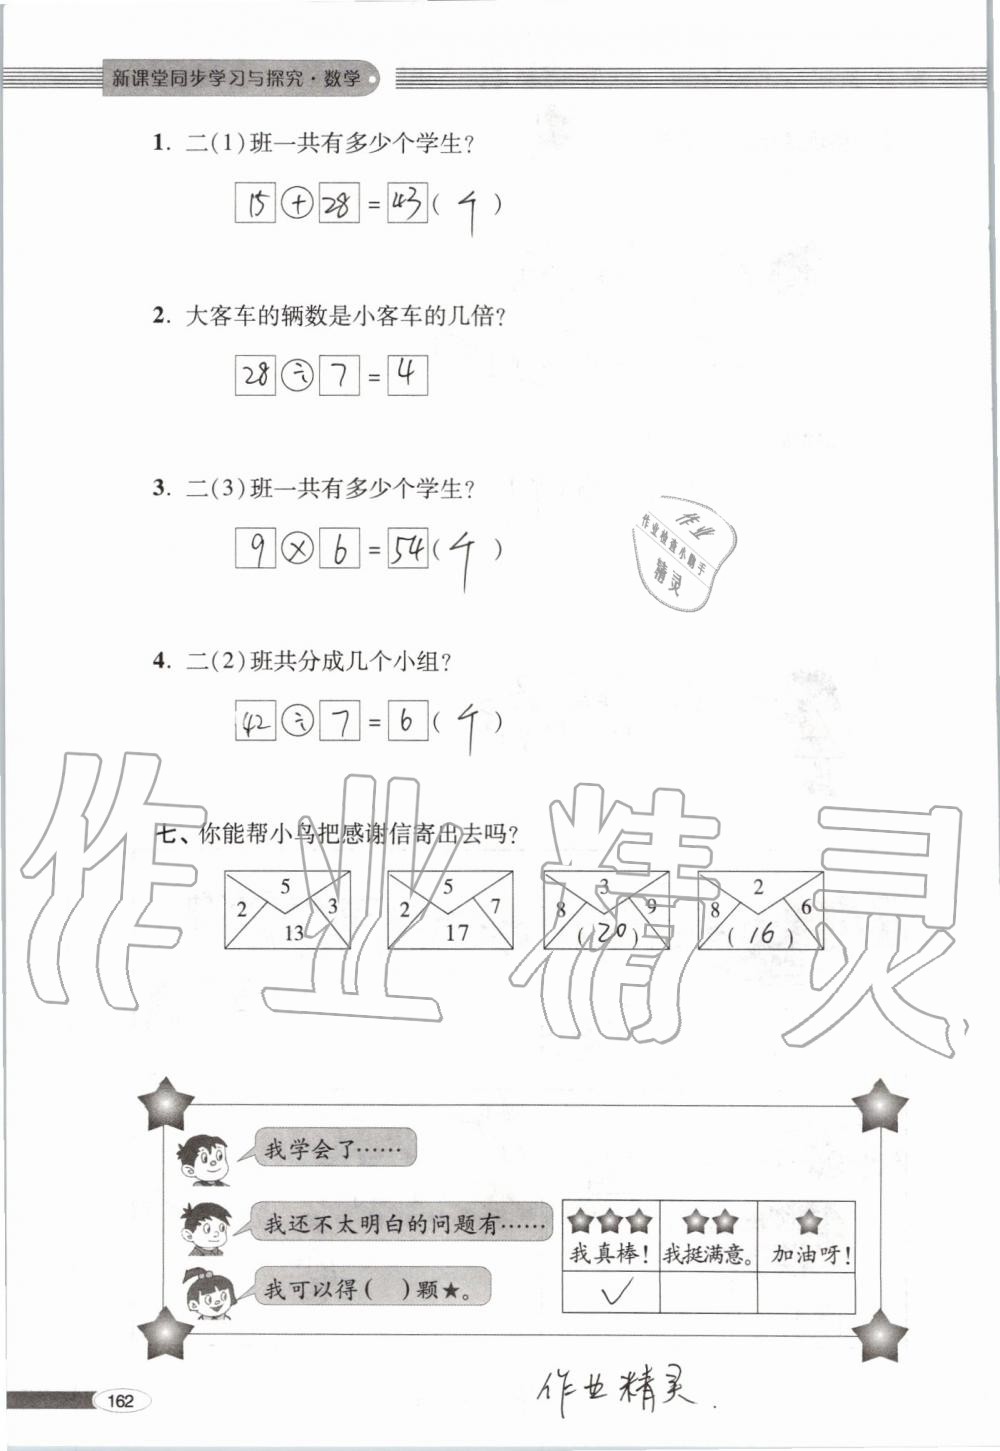 新课堂同步学习与探究·数学
1. 二(1)班一共有多少个学生?
15 + 28 = 43 ( 个 )
2. 大客车的辆数是小客车的几倍?
28 ÷ 7 = 4
3. 二(3)班一共有多少个学生?
9 × 6 = 54 ( 个 )
作业
作业检查小助手
精灵
4. 二(2)班共分成几个小组?
42 ÷ 7 = 6 ( 个 )
作业精灵
七、你能帮小鸟把感谢信寄出去吗?
5 5 3 2
2 3 2 7 8 9 8 6
13 17 (20) (16)
我学会了……
我还不太明白的问题有……
我可以得( )颗★。
★★★ ★★ ★
我真棒! 我挺满意。 加油呀!
✓
作业精灵.
162